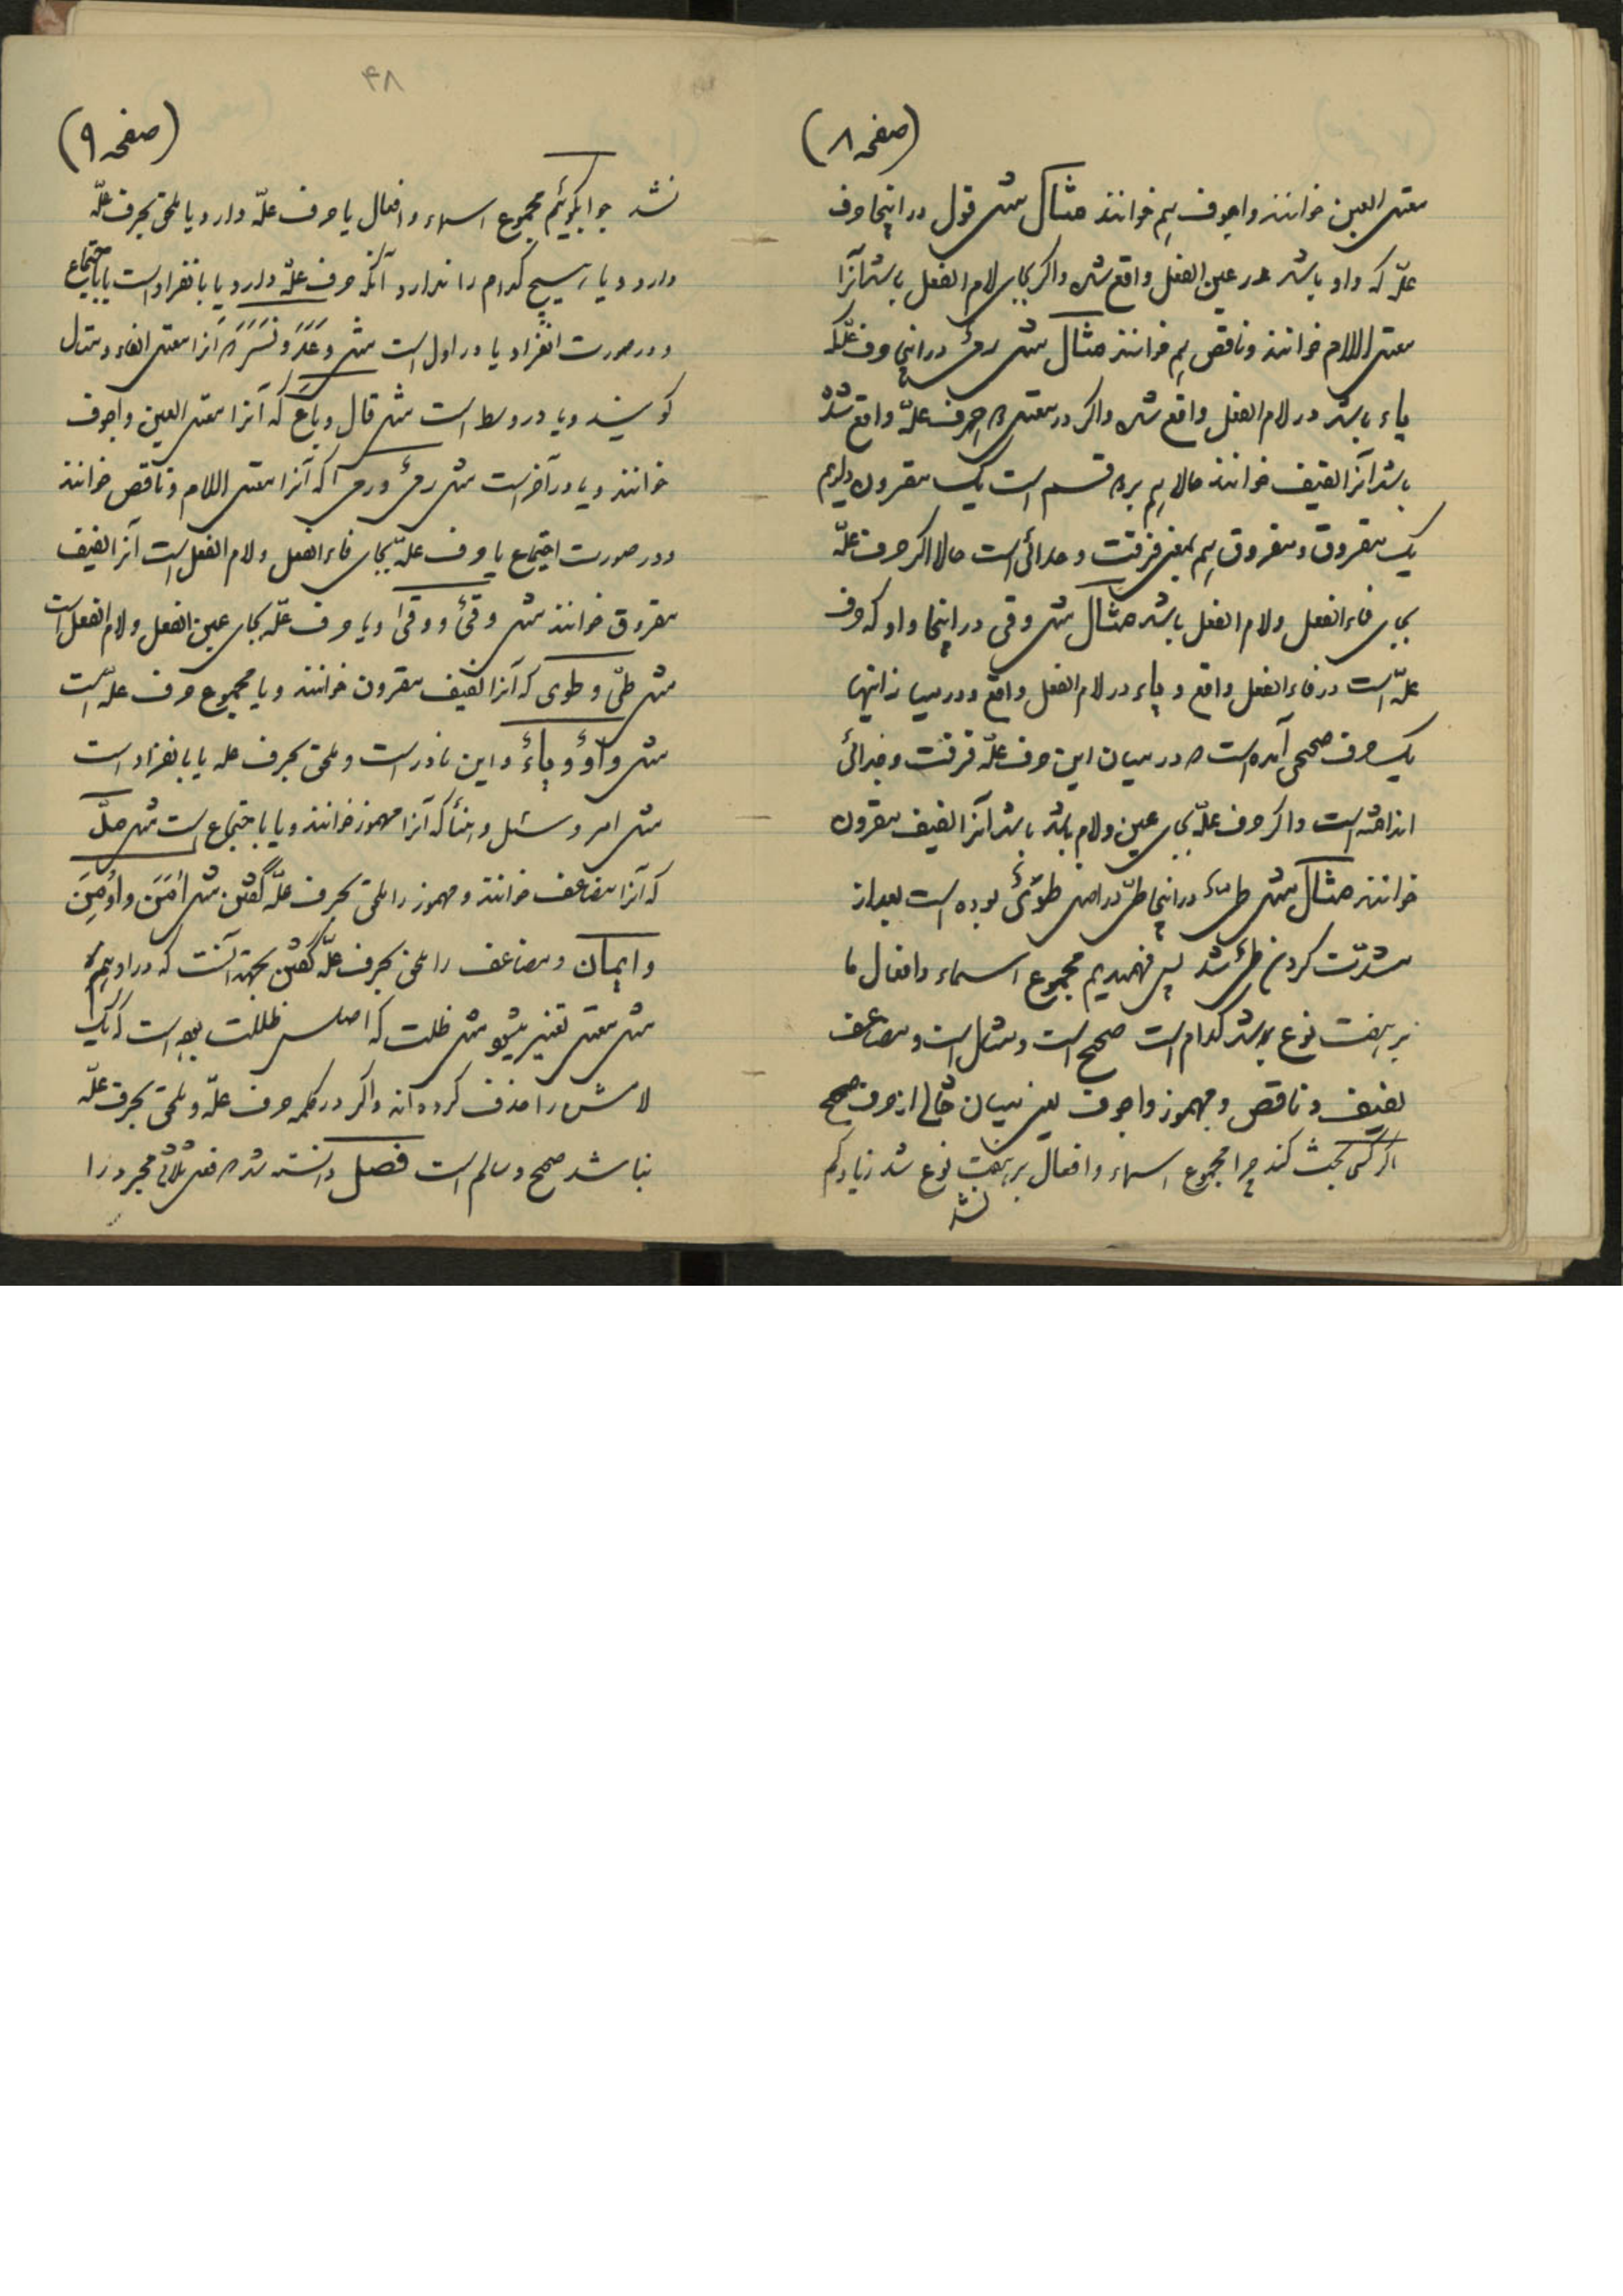 (صفحه ۸)
معتل العین خوانند واجوف هم خوانند مثال مثل قول در اینجا حرف
علّه که واو باشد در عین الفعل واقع شده واگر بجای لام الفعل باشد آنرا
معتل اللام خوانند وناقص هم خوانند مثال مثل رمی در اینجا حرف علّه که
یاء باشد در لام الفعل واقع شده واگر در معتل دو حرف علّه واقع شده
باشد آنرا لفیف خوانند حالا هم بر دو قسم است یک مقرون داریم
یک مفروق ومفروق هم بمعنی فرقت وجدائی است حالا اگر حرف علّه
بجای فاء الفعل ولام الفعل باشد مثال مثل وقی در اینجا واو که حرف
علّه است در فاء الفعل واقع و یاء در لام الفعل واقع ودر میان اینها
یک حرف صحیحی آمده است که در میان این حرف علّه فرقت وجدائی
انداخته است واگر حرف علّه بجای عین ولام باشد باشد آنرا لفیف مقرون
خوانند مثال مثل طیّ در اینجا طیّ در اصل طَوْیٌ بوده است بعد از
مشدّت کردن طیّ شد پس فهمیدیم مجموع اسماء وافعال ما
بر هفت نوع باشد کدام است صحیح است ومثال است ومضاعف
لفیف و ناقص و مهموز واجوف یعنی میان خالی از حرف صحیح
اگر کسی بحث کند چرا مجموع اسماء وافعال بر هفت نوع شد زیاد وکم
نشد
۴۸
(صفحه ۹)
نشد جوابگوئیم مجموع اسماء وافعال یا حرف علّه دارد یا ملحق بحرف علّه
دارد و یا هیچ کدام را ندارد آنکه حرف علّه دارد یا بانفراد است یا باجتماع
ودر صورت انفراد یا در اول است مثل وَعَدَ ویَسَرَ که آنرا معتل الفاء ومثال
گویند ویا در وسط است مثل قال وباع که آنرا معتل العین واجوف
خوانند ویا در آخر است مثل رمی ورمی که آنرا معتل اللام وناقص خوانند
ودر صورت اجتماع یا حرف علّه بجای فاء الفعل ولام الفعل است آنرا لفیف
مفروق خوانند مثل وقیٌ ووقی ویا حرف علّه بجای عین الفعل ولام الفعل است
مثل طیّ وطوی که آنرا لفیف مقرون خوانند ویا مجموع حرف علّه است
مثل واوٌ ویاءٌ واین نادر است وملحق بحرف علّه یا بانفراد است
مثل امر وسئل وهنأ که آنرا مهموز خوانند ویا باجتماع است مثل ملّ
که آنرا مضاعف خوانند ومهموز را ملحق بحرف علّه گفتن مثل اَمَنَ واُومِنَ
وایمان ومضاعف را ملحق بحرف علّه گفتن بجهة آنست که در او هم
مثل معتل تغییر میشود مثل ظلت که اصلش ظللت بوده است که یک
لامش را حذف کرده اند واگر در کلمه حرف علّه وملحق بحرف علّه
نباشد صحیح وسالم است فصل دانسته شد که فعل ثلاثی مجرد را